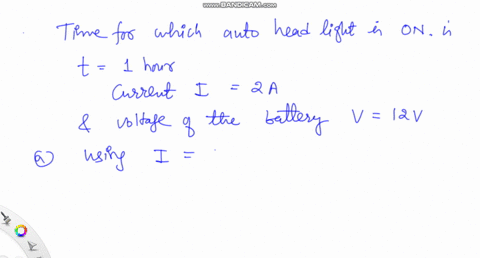 WWW.BANDICAM.COM
Time for which auto head light is ON. is
t = 1 hour
Current I = 2A
& voltage of the battery V = 12V
a) using I =